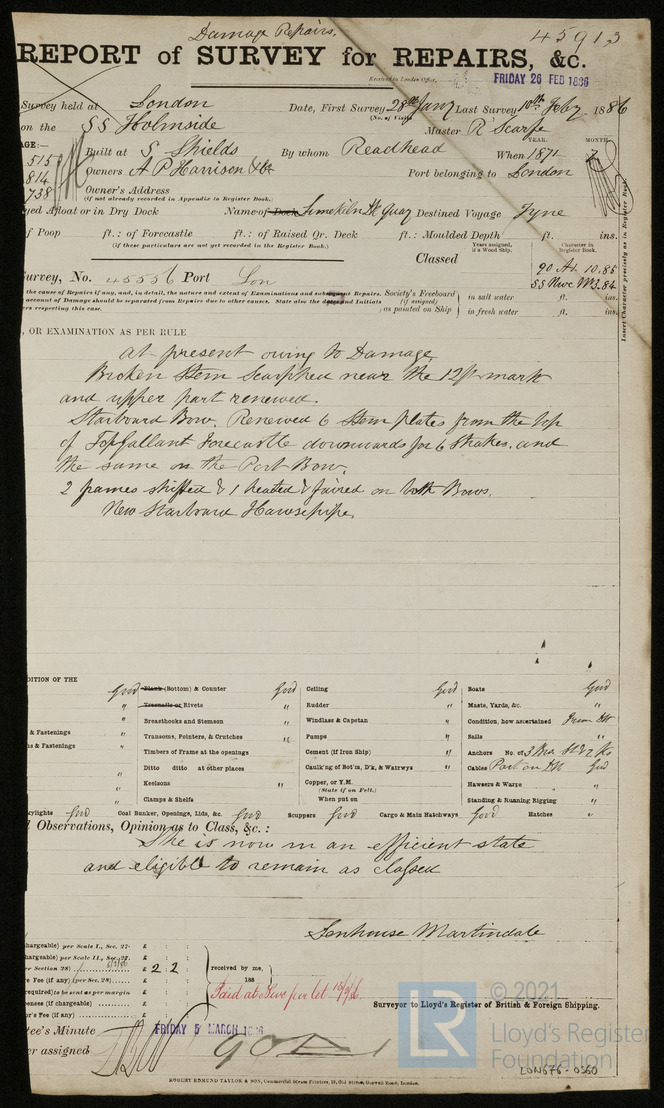 Damage Repairs.
45913
REPORT of SURVEY for REPAIRS, &c.
Received in London Office,
FRIDAY 26 FEB 1886
Survey held at London Date, First Survey 28th Jany Last Survey 10th Feby 1886
(No. of Visits
on the SS Holmside Master R Scarfe
AGE:— YEAR. MONTH.
515 Built at S Shields By whom Readhead When 1871 7
814 Owners A P Harrison &Co Port belonging to London
738 Owner's Address
(if not already recorded in Appendix to Register Book.)
yed Afloat or in Dry Dock Name of Dock Limekiln Dk Quay Destined Voyage Tyne
of Poop ft.: of Forecastle ft.: of Raised Qr. Deck ft.: Moulded Depth ft. ins.
(if these particulars are not yet recorded in the Register Book.)
Years assigned, if a Wood Ship. Character in Register Book.
Classed 90 A1 10.85
SS Nwc No3.84
Survey, No. 45556 Port Lon
the cause of Repairs if any, and, in detail, the nature and extent of Examinations and subsequent Repairs.
account of Damage should be separated from Repairs due to other causes. State also the dates and Initials
ers respecting this case.
Society's Freeboard (if assigned) as painted on Ship in salt water ft. ins.
in fresh water ft. ins.
Insert Character precisely as in Register Book
, OR EXAMINATION AS PER RULE
at present owing to Damage
Broken Stem Scarphed near the 12ft mark
and upper part renewed.
Starboard Bow. Renewed 6 Stem plates from the top
of Topgallant Forecastle downwards for 6 Strakes. and
the same on the Port Bow.
2 frames shifted & 1 heated & faired on both Bows.
New Starboard Hawsepipe
DITION OF THE
Good Plank (Bottom) & Counter Good Ceiling Good Boats Good
" Treenails or Rivets " Rudder " Masts, Yards, &c. "
" Breasthooks and Stemson " Windlass & Capstan " Condition, how ascertained From Dk
& Fastenings " Transoms, Pointers, & Crutches " Pumps " Sails "
s & Fastenings " Timbers of Frame at the openings Cement (if Iron Ship) " Anchors No. of
Ditto ditto at other places Caulk'ng of Bot'm, D'k, & Watrwys " Cables Part on Dk Good
" Keelsons " Copper, or Y.M. Hawsers & Warps "
(State if on Felt.)
" Clamps & Shelfs When put on Standing & Running Rigging "
kylights Good Coal Bunker, Openings, Lids, &c. Good Scuppers Good Cargo & Main Hatchways Good Hatches "
l Observations, Opinion as to Class, &c. :
She is now in an efficient state
and eligible to remain as classed
Senhouse Martindale
hargeable) per Scale I., Sec. 27. £ : :
hargeable) per Scale II., Sec. 27. £ : :
er Section 28) £ 2 2
re Fee (if any) (per Sec. 28) £ : :
required) to be sent as per margin £ : :
penses (if chargeable) £ : :
or's Fee (if any) £ : :
received by me,
188
Paid at Live per let 16/3/86.
Surveyor to Lloyd's Register of British & Foreign Shipping.
tee's Minute FRIDAY 5 MARCH 1886
er assigned 90 A1
ROBERT EDMUND TAYLOR & SON, Commercial Steam Printers, 19, Old Street, Goswell Road, London.
© 2021
LR
Lloyd's Register
Foundation
LON676-0560